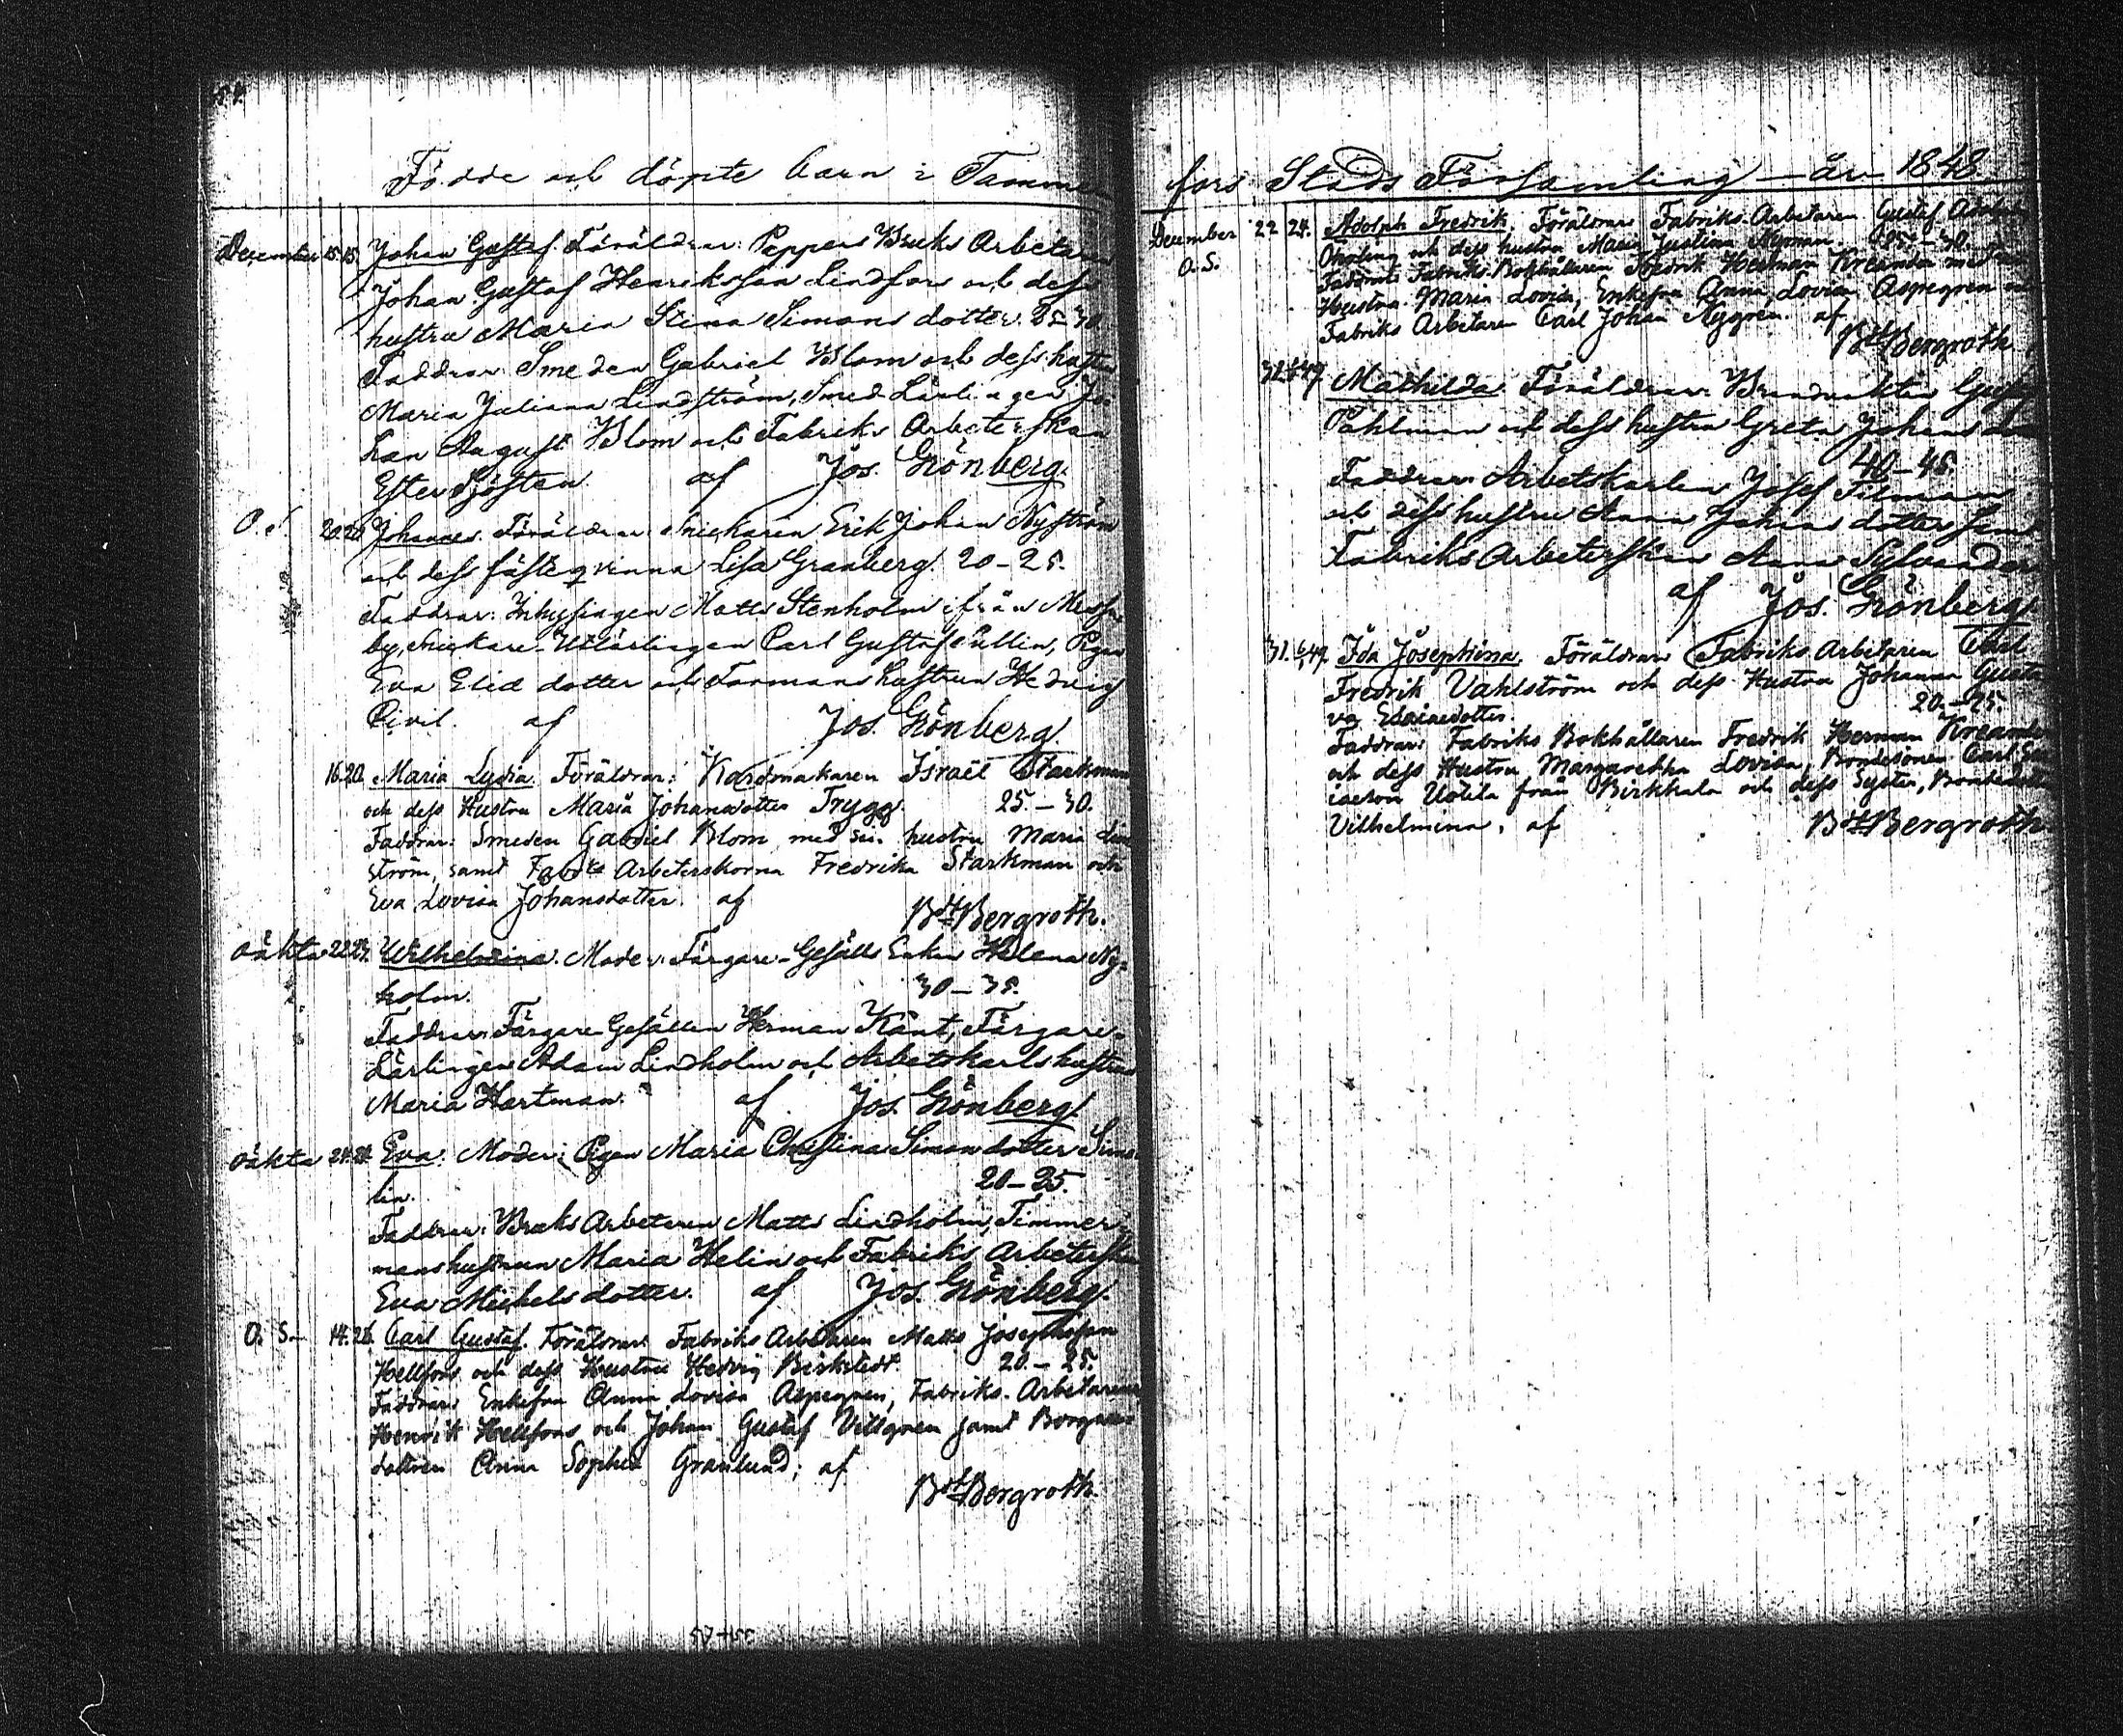 Födde och döpte barn i Tammer
December 15. 15. Johan Gustaf. Föräldrar: Pappers Bruks Arbetaren
Johan Gustaf Henriksson Lindfors och dess
hustru Maria Stina Simons dotter. 25–30.
Faddrar: Smeden Gabriel Blom och dess hustru
Maria Juliana Lindström, Smed-Lärlingen Jo-
han August Blom och Fabriks Arbeterskan
Ester Sjösten. af Jos. Grönberg.
O. S. 20. 20. Johannes. Föräldrar: Snickaren Erik Johan Nyström
och dess fästeqvinna Lisa Granberg. 20–25.
Faddrar: Inhysingen Matts Stenholm ifrån Messu-
by, Snickare-Utlärlingen Carl Gustaf Sallin, Pigan
Eva Elied dotter och Formans hustrun Hedvig
Civil. af Jos. Grönberg
16. 20. Maria Lydia. Föräldrar: Kardmakaren Israël Starkman
och dess Hustru Maria Johansdotter Trygg. 25.–30.
Faddrar: Smeden Gabriel Blom med sin hustru Maria Lind
ström, samt Fabriks Arbeterskorna Fredrika Starkman och
Eva Lovisa Johansdotter. af
Bdt Bergroth.
oäkta 22. Wilhelmina. Moder: Färgare-Gesälls Enkan Helena Ny-
holm. 30–35.
Faddrar: Färgare-Gesällen Herman Känt, Färgare-
Lärlingen Adam Lindholm och Arbetskarls hustrun
Maria Hartman. af Jos. Grönberg
oäkta 24. 24. Eva. Moder: Pigan Maria Christina Simonsdotter Sime-
lin. 20–25.
Faddrar: Bruks Arbetaren Matts Lindholm, Timmer-
manshustrun Maria Helin och Fabriks Arbeterskan
Eva Michelsdotter. af Jos. Grönberg.
O. S. 14. 26. Carl Gustaf. Föräldrar: Fabriks Arbetaren Matts Josephsson
Hellfors och dess Hustru Hedvig Birkstedt. 20.–25.
Faddrar: Enkefru Anna Lovisa Aspegren, Fabriks-Arbetarene
Henrik Hellfors och Johan Gustaf Villgren samt Borgare-
dottren Anna Sophia Granlund; af
Bdt Bergroth.
fors Stads Församling år 1848.
December 22 24. Adolph Fredrik, Föräldrar Fabriks-Arbetaren Gustaf Adolph
O. S. och dess hustru Maria Justina Nyman. 25.–30.
Faddrar: Fabriks-Bokhållaren Fredrik Herman Kreander med
Hustru Maria Lovisa, Enkefru Anna Lovisa Aspegren
Fabriks Arbetaren Carl Johan Nygren. af
Bdt Bergroth
31. 49. Mathilda. Föräldrar: Brandvakten Gustaf
Pahlman och dess hustru Greta Johans dotter
40–45.
Faddrar: Arbetskarlen Josef Tilman
och dess hustru Anna Johans dotter samt
Fabriks Arbeterskan Anna Sylvander
af Jos. Grönberg.
31. 49. Ida Josephina. Föräldrar Fabriks Arbetaren Carl
Fredrik Vahlström och dess Hustru Johanna Gusta-
va 20.–25.
Faddrar: Fabriks Bokhållaren Fredrik Herman Kreander
och dess Hustru Margaretha Lovisa, Bondesonen Carl
Uotila från Birkkala och dess Syster, Bondedottren
Vilhelmina; af Bdt Bergroth.